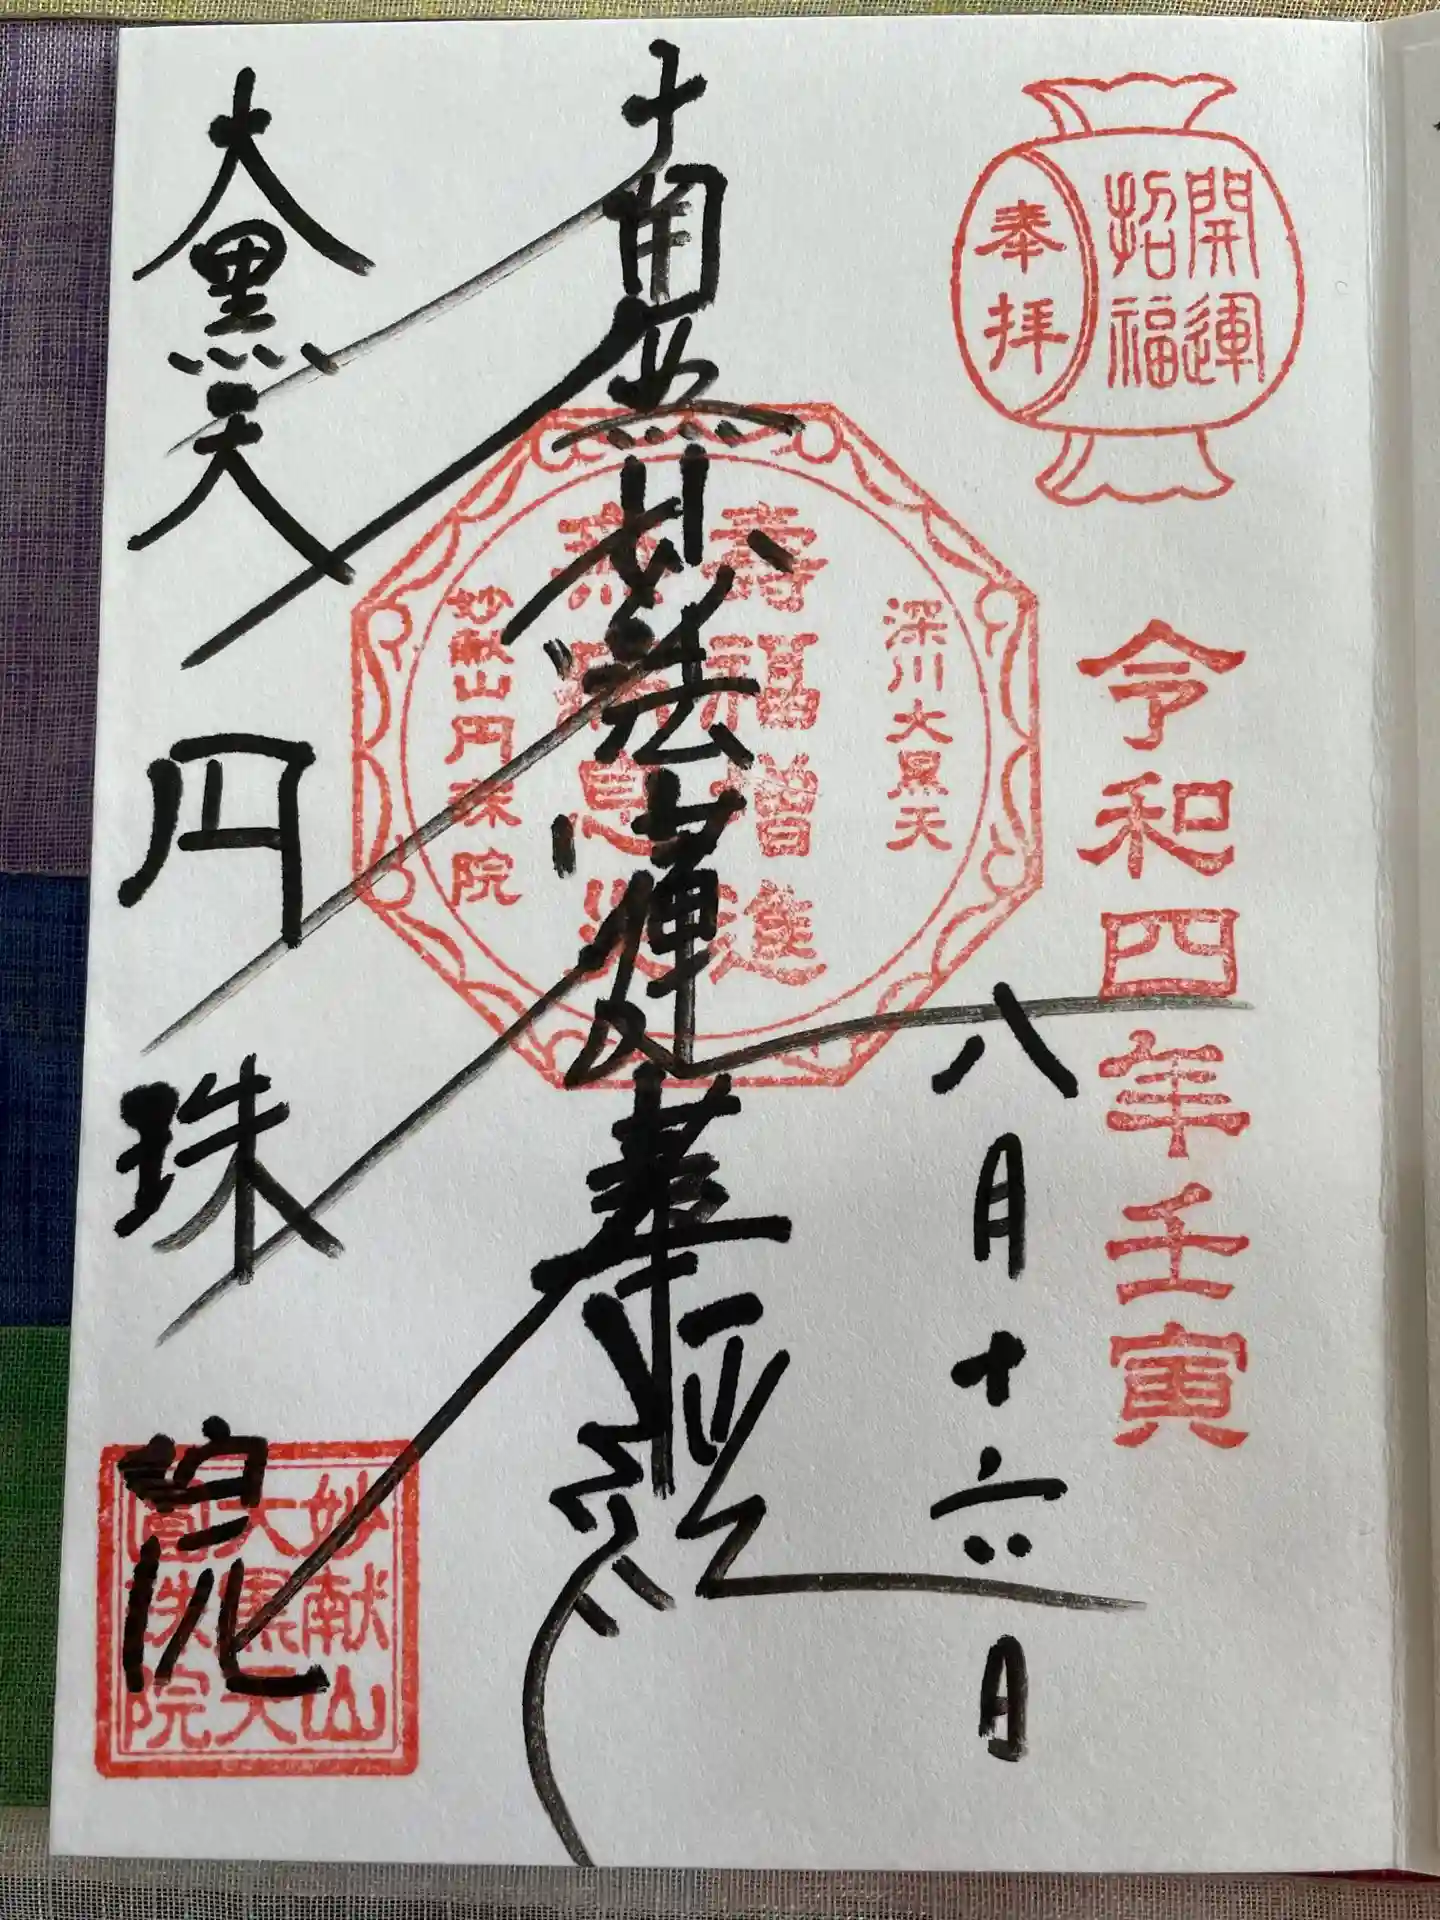 開運
招福
奉拝
令和四年壬寅
八月十六日
南無妙法蓮華経
深川大黒天
寿福増進
無病息災
妙献山円珠院
大黒天
円珠院
妙献山
大黒天
圓珠院